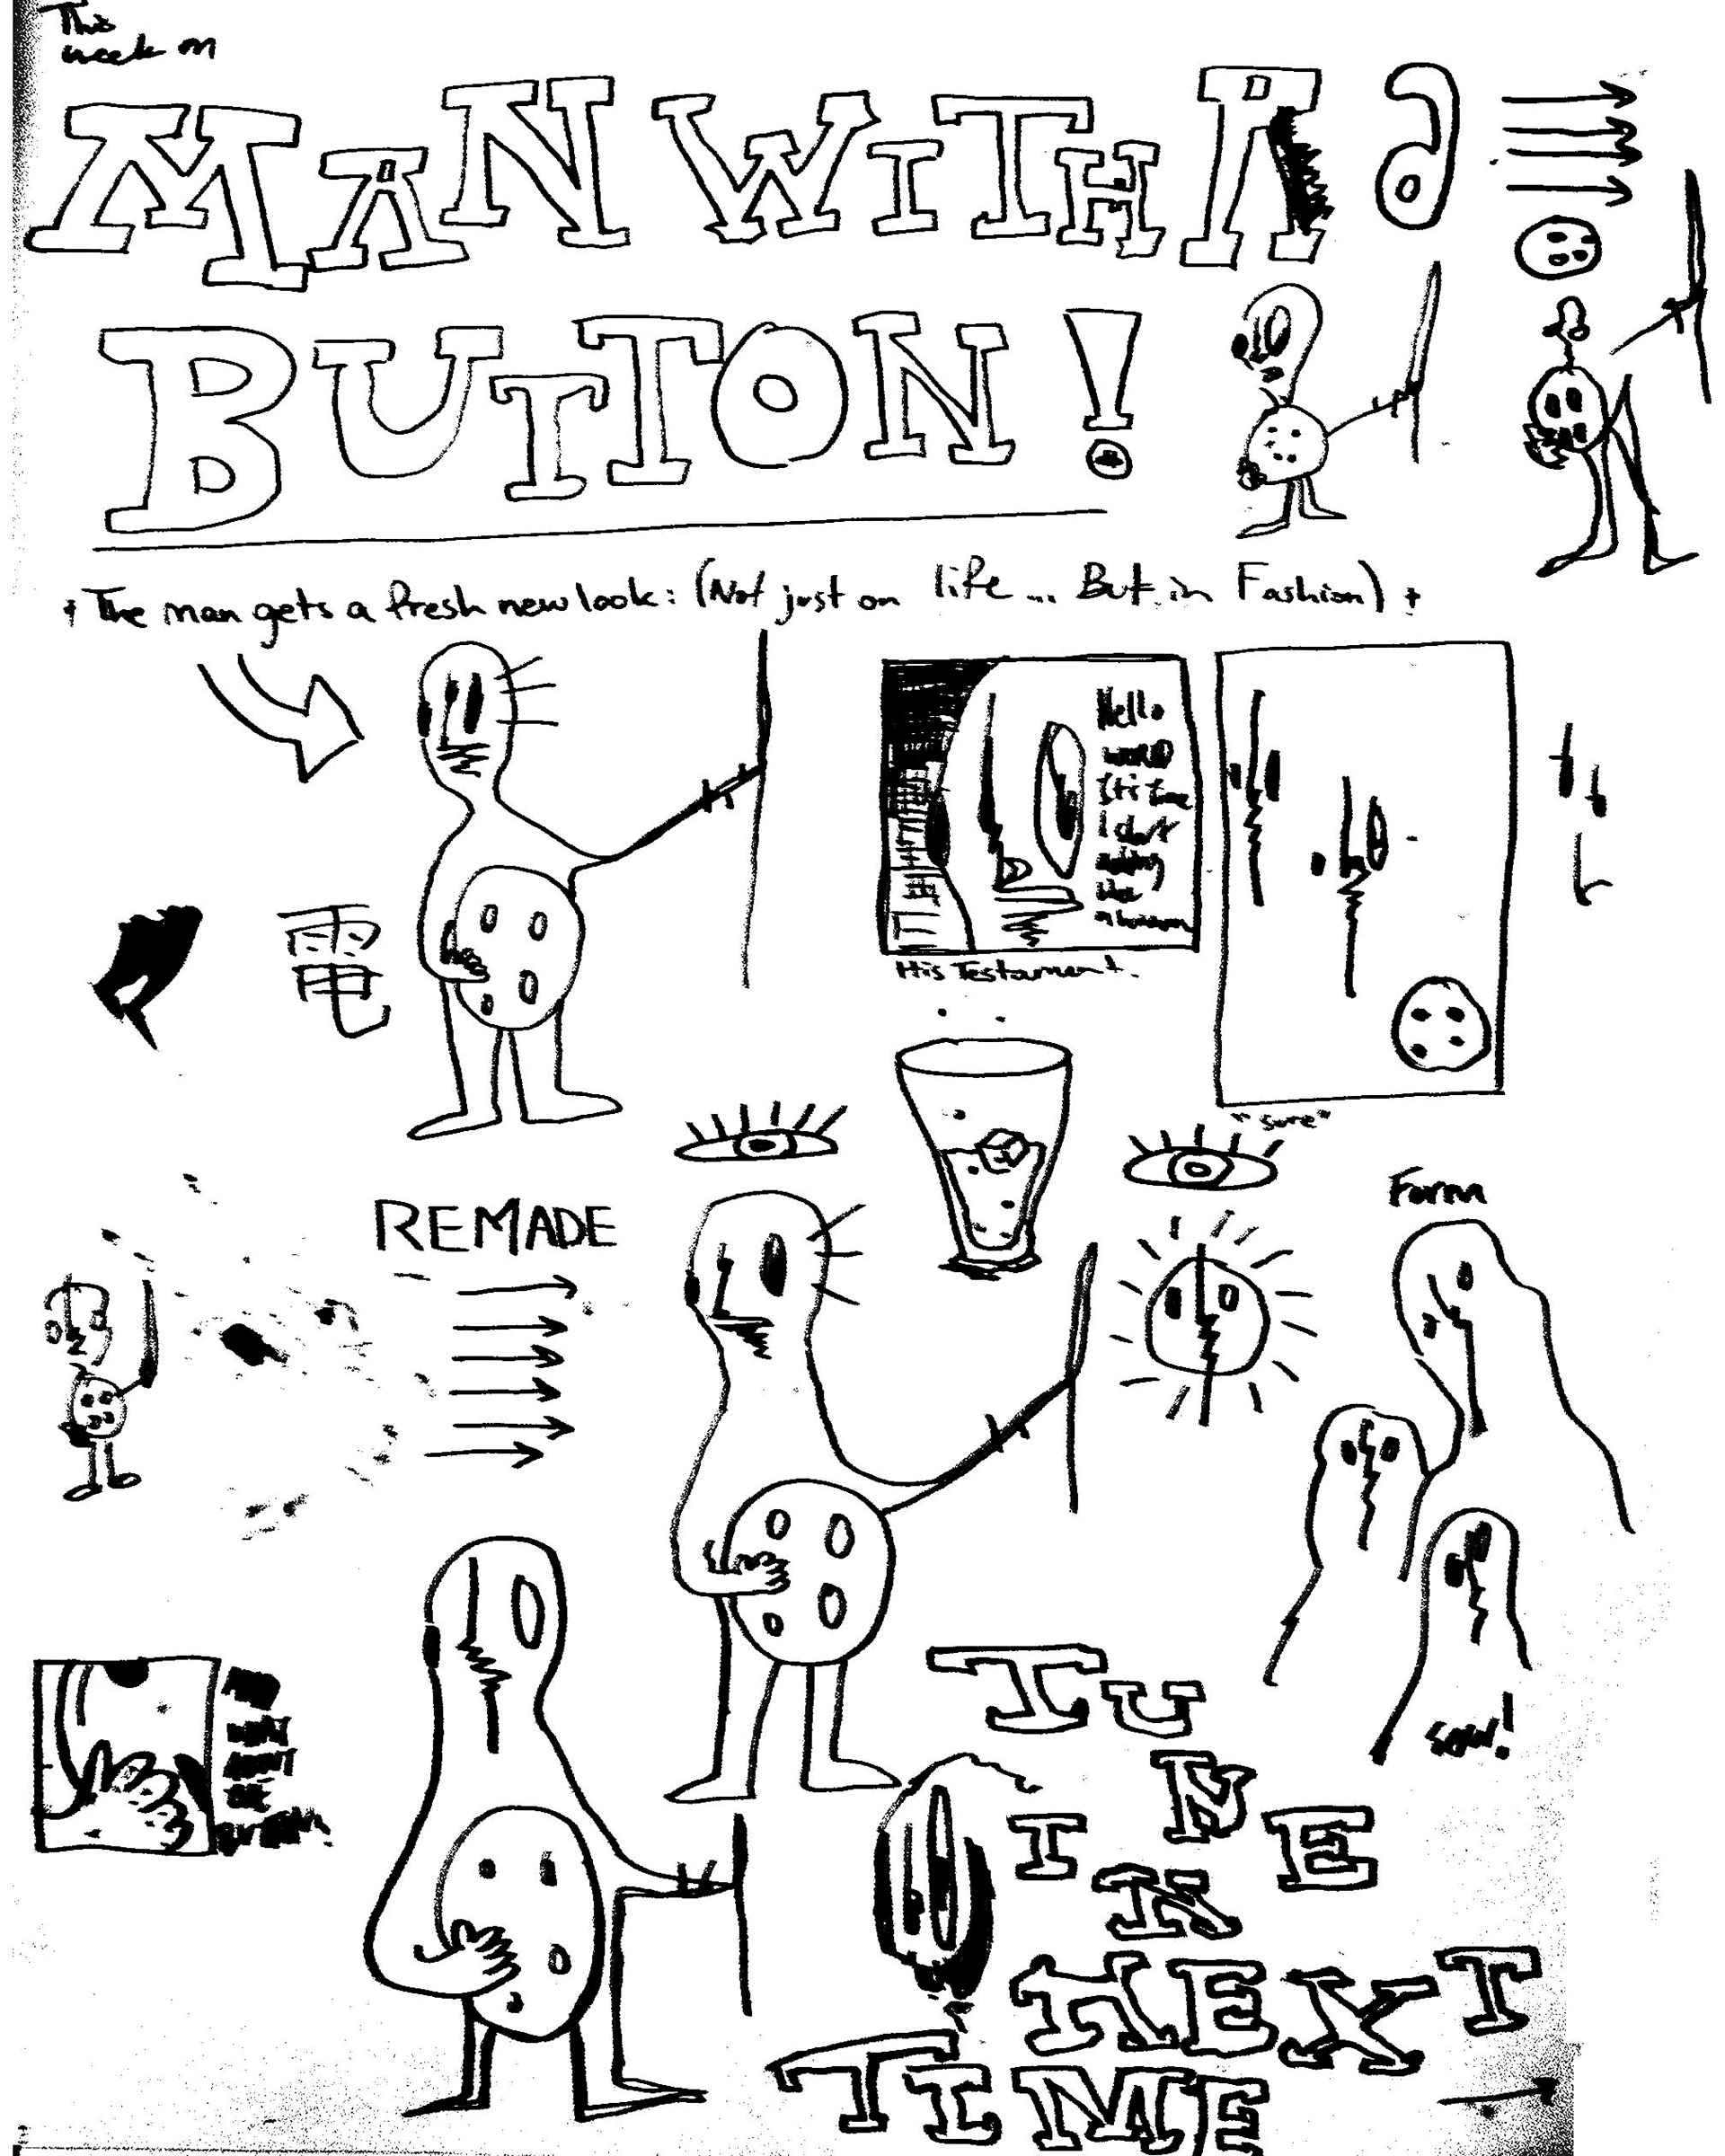 This
week on
MAN WITH A
BUTTON!
The man gets a fresh new look: (Not just on life... But in Fashion)
Hello
world
it's time
I start
acting
like
a human
His Testament.
"sure"
電
REMADE
Form
sow!
TUNE
IN
NEXT
TIME